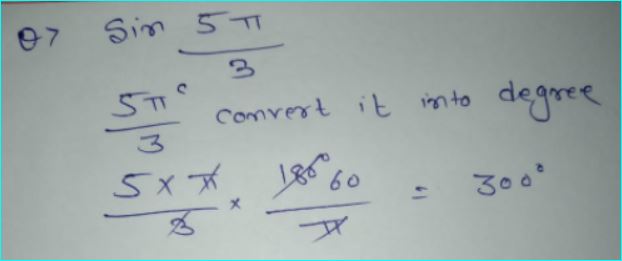 Q7 Sin 5π/3
5πᶜ/3 convert it into degree
5×π/3 × 180° 60/π = 300°